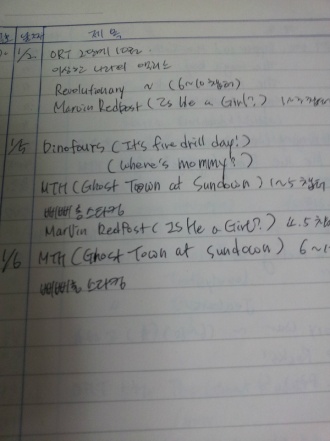 날짜 제목
1/2. ORT 2단계 1권.
이상한 나라의 앨리스
Revolutionary ~ (6~10챕터)
Marvin Redpost (Is He a Girl?) 1~3챕터
1/5 Dinofours (It's fire drill day!)
(Where's mommy?)
MTH (Ghost Town at Sundown) 1~5챕터
삐삐롱스타킹
Marvin Redpost (Is He a Girl?) 4.5챕터
1/6 MTH (Ghost Town at Sundown) 6~1
삐삐롱 스타킹